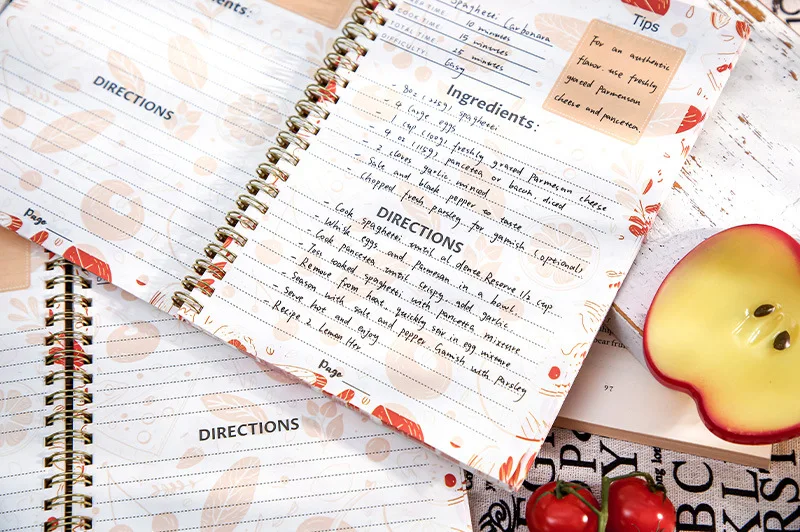 nts:
DIRECTIONS
Page
Spaghetti Carbonara
10 minutes
COOK TIME: 15 minutes
TOTAL TIME: 25 minutes
DIFFICULTY: Easy
Tips
For an authentic
flavor use freshly
grated Parmensan
cheese and pancetea.
Ingredients:
- 8oz (225g) spaghetti
- 4 large eggs
- 1 cup (100g) freshly grased Parmesan cheese
- 4 oz (115g) pancetea or bacon, diced
- 2 cloves garlic minced
- Sale and black pepper to taste
- Chopped fresh parsley for garnish (optional)
DIRECTIONS
- Cook spagherei until al dente. Reserve 1/2 cup
- Whisk eggs and parmesan in a bowl.
- Cook pancetea until crispy. add garlic.
- Toss cooked spaghetti with pancetea mixture
- Remove from heat quickly stir in egg mixture
- Season with sale and pepper Garnish with parsley
- Serve hot and enjoy
- Recipe 2 Lemon Her
Page
DIRECTIONS